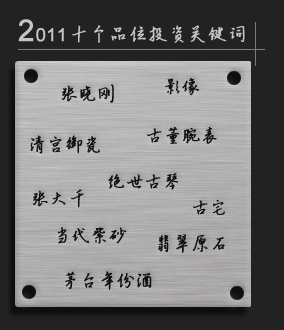 2011十个品位投资关键词
张晓刚
影像
清宫御瓷
古董腕表
绝世古琴
张大千
古宅
当代紫砂
翡翠原石
茅台年份酒